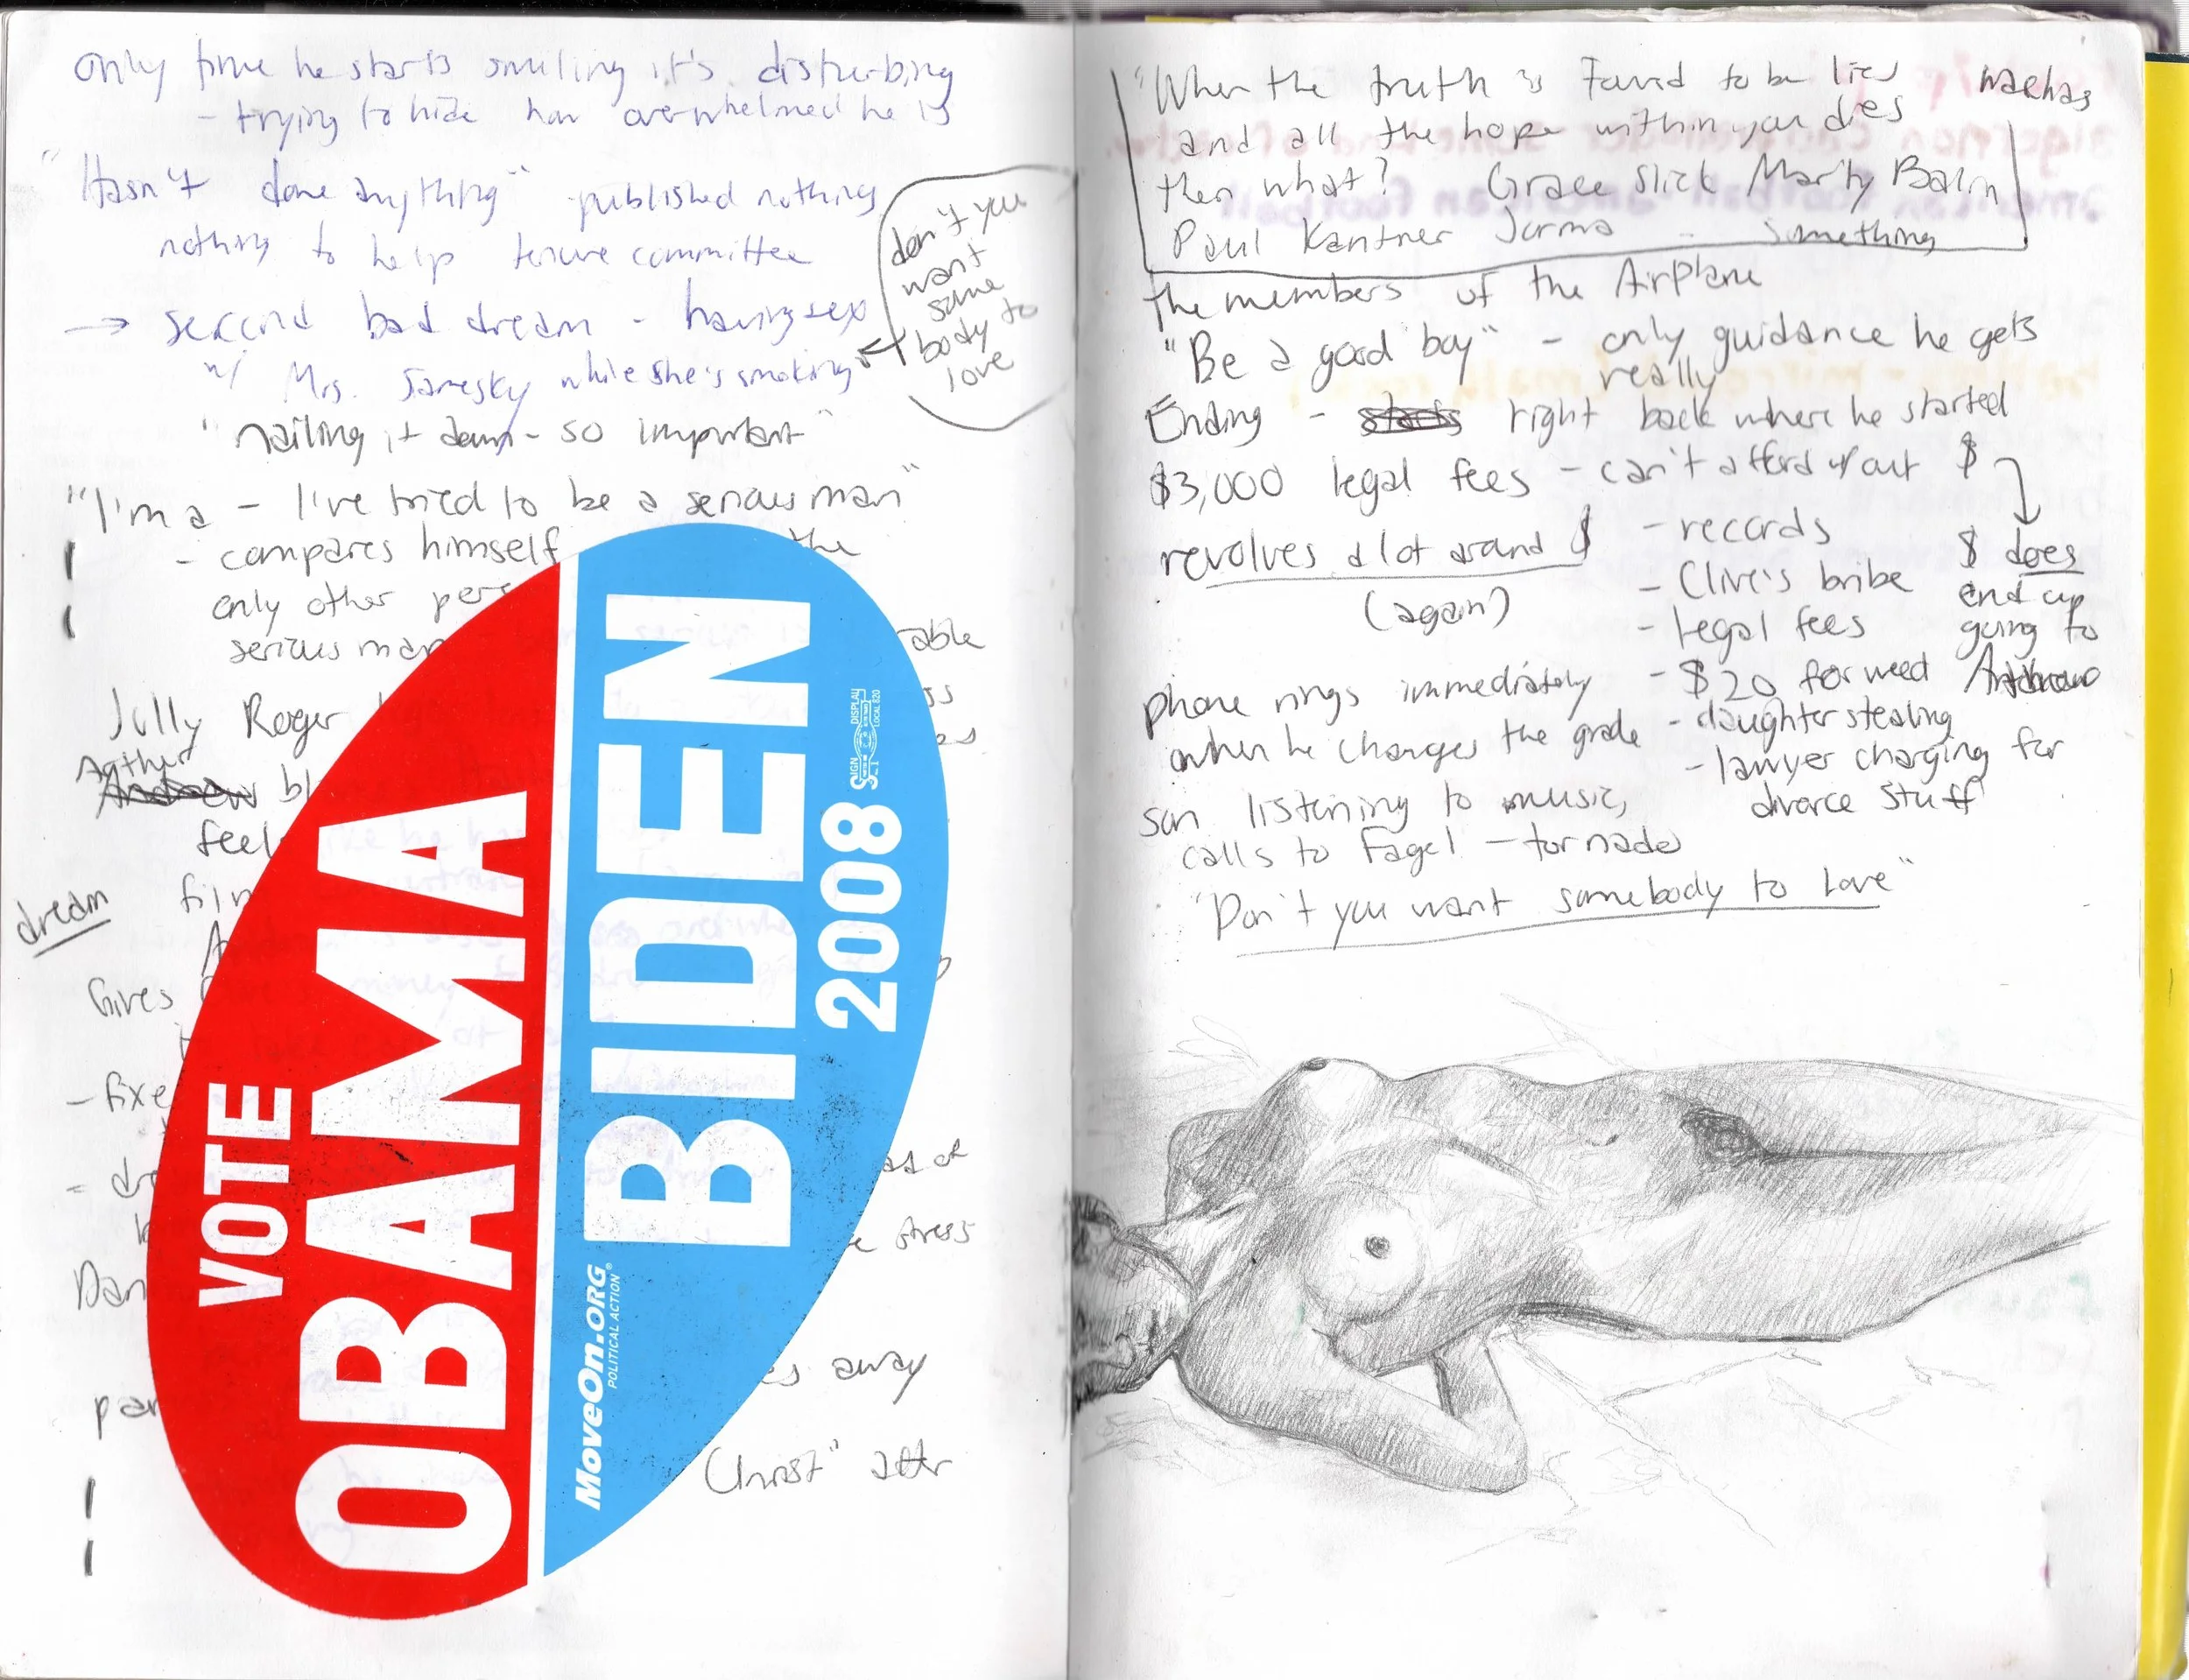 only time he starts smiling it's disturbing
- trying to hide how overwhelmed he is
"Hasn't done anything" published nothing
nothing to help tenure committee
→ second bad dream - having sex
w/ Mrs. Samesky while she's smoking
don't you
want
some
body to
love
"nailing it down - so important"
"I'm a - I've tried to be a serious man"
- compares himself the
only other pers
serious man able
Jolly Roger ss
es
Arthur
Andrew bl
feel
dream
film
A
Gives
- fixe
- dre
stress
Dan
es away
par
Christ" after
VOTE
OBAMA
BIDEN
2008
MoveOn.ORG
POLITICAL ACTION
SIGN DISPLAY
LOCAL 820
"When the truth is found to be lies
and all the hope within you dies
then what? Grace Slick Marty Balin
Paul Kantner Jorma .. something
the members of the Airplane
"Be a good boy" - only guidance he gets
really
Ending - starts right back where he started
$3,000 legal fees - can't afford w/out $
revolves a lot around $
(again)
- records
- Clive's bribe
- legal fees
- $20 for weed
- daughter stealing
- lawyer charging for
divorce stuff
$ does
end up
going to
phone rings immediately
when he changes the grade
son listening to music,
calls to Fagel - tornado
"Don't you want somebody to love"